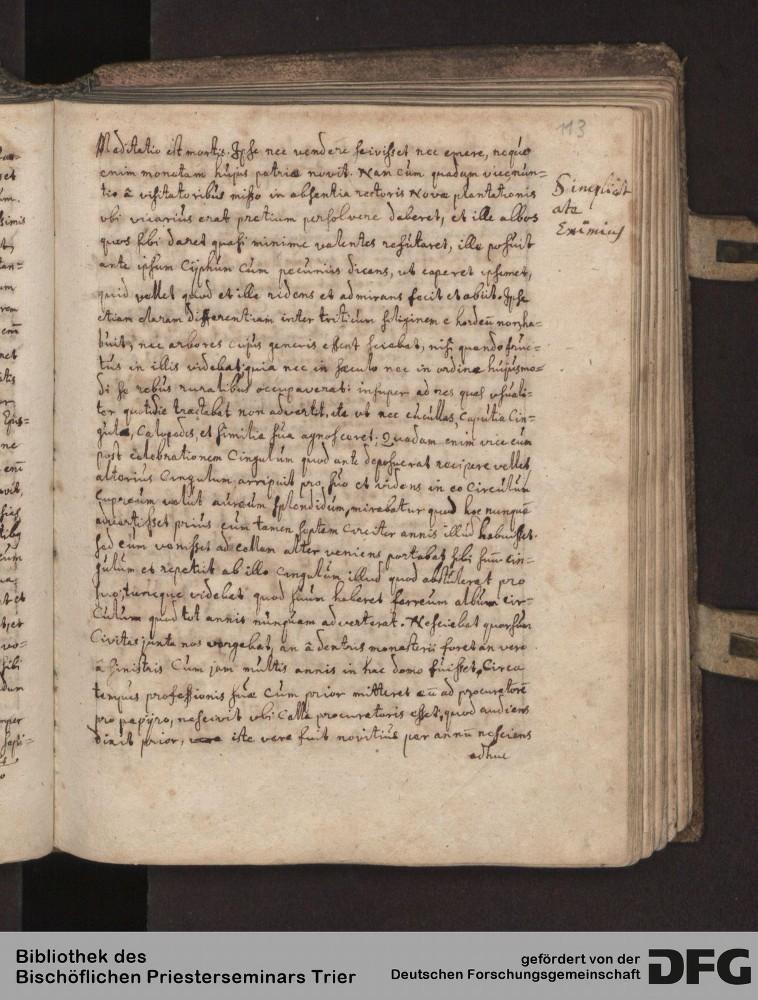 113
Meditatio est mortis. Ipse nec vendere scivisset nec emere, neque
enim monetam hujus patriæ novit. Nam cum quadam vice nun-
tio â visitatoribus misso in absentia rectoris Novæ plantationis
vbi vicarius erat pretium persolvere deberet, et ille albos
quos sibi daret quasi minime valentes refutaret, ille posuit
ante ipsum Cyphum cum pecuniis dicens, ut caperet ipsemet,
quid vellet quod et ille ridens et admirans fecit et abiit. Ipse
etiam claram differentiam inter triticum siliginem e hordeū non ha-
buit, nec arbores cujus generis essent sciebat, nisi quando fruc-
tus in illis videbat quia nec in sæculo nec in ordine hujusmo-
di se rebus ruralibus occupaverat: insuper ad res quas usuali-
ter quotidie tractabat non advertit, ita vt nec cucullas, Caputia Cin-
gula, Calopodes, et similia sua agnosceret; Quadam enim vice cum
post celebrationem Cingulum quod ante deposuerat recipere vellet
alterius Cingulum arripuit pro suo et videns in eo Circulum
cupreum velut aureum splendidum, mirabatur quod hoc nunquā
advertisset prius cum tamen septem circiter annis illud habuisset.
sed cum venisset ad cellam alter veniens portabat sibi suū cin-
gulum et repetiit ab illo Cingulum illud quod abstulerat pro
suo, tuncque videbat quod suum haberet ferreum album cir-
Culum quod tot annis nunquam adverterat. Nesciebat quorsum
Civitas juxta nos vergebat, an â dextris monasterii foret an vero
â sinistris Cum jam multis annis in hac domo fuisset, Circa
tempus professionis suæ Cum prior mitteret eū ad procuratorē
pro papyro, nescivit vbi Cella procuratoris esset, quod audiens
dixit prior, iste vere fuit novitius per annū nesciens
adhuc
Simplicit
ate
Eximius
Bibliothek des
Bischöflichen Priesterseminars Trier
gefördert von der
Deutschen Forschungsgemeinschaft
DFG